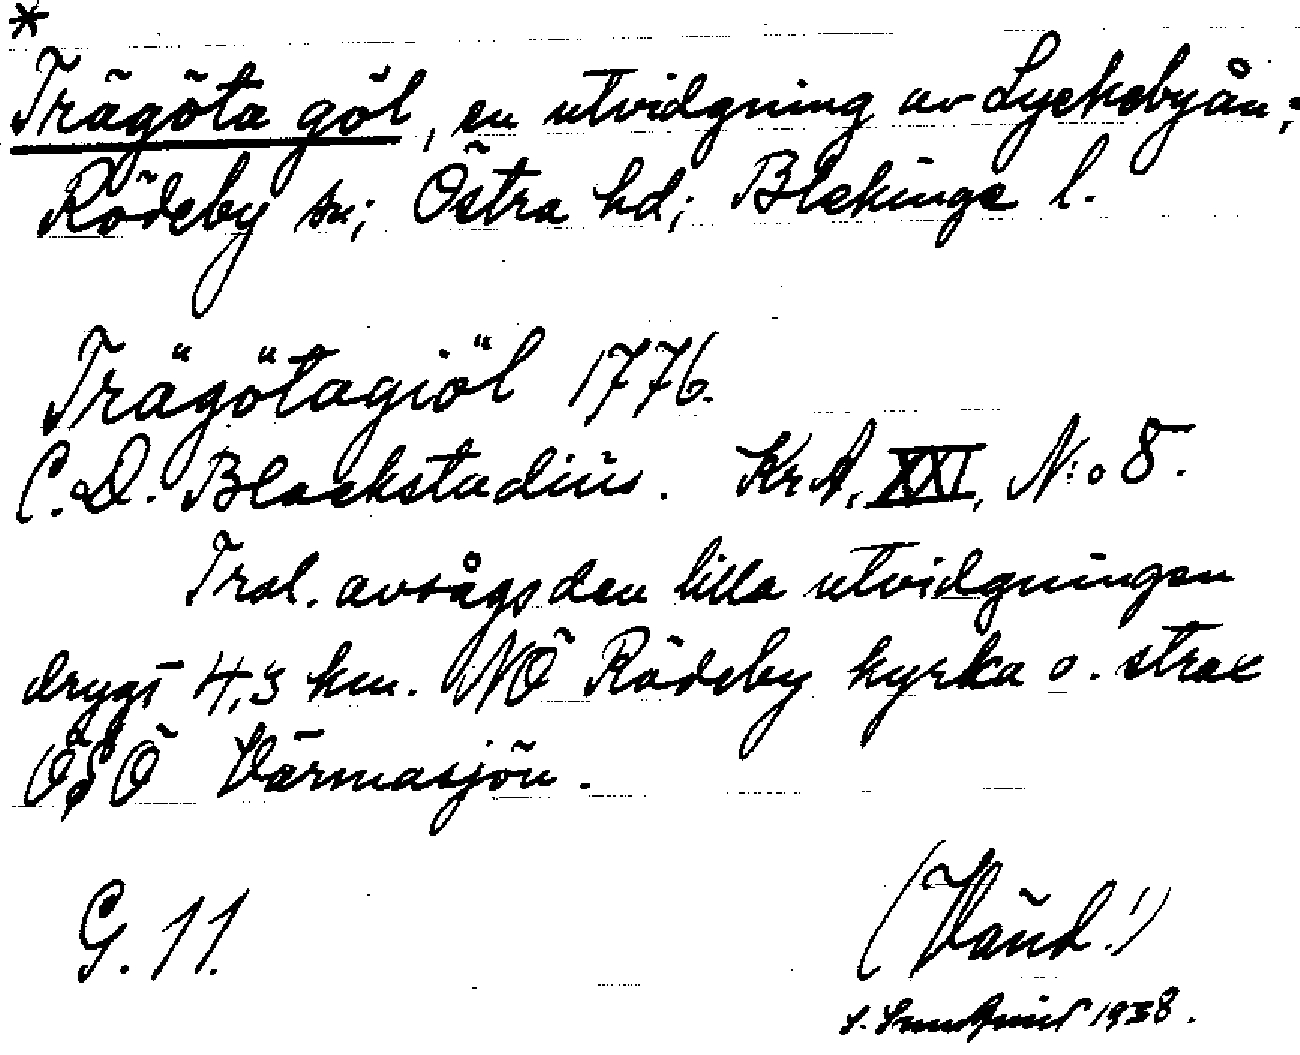 *
Trägöta göl, en utvidgning av Lyckebyån;
Rödeby sn; Östra hd; Blekinge l.
Trägötagiöl 1776.
C.D. Blackstadius. KrA, XXI, N:o 8.
Trol. avsågs den lilla utvidgningen
drygt 4,3 km. NÖ Rödeby kyrka o. strax
ÖSÖ Värmasjön.
G. 11.
(Vänd!)
1938.